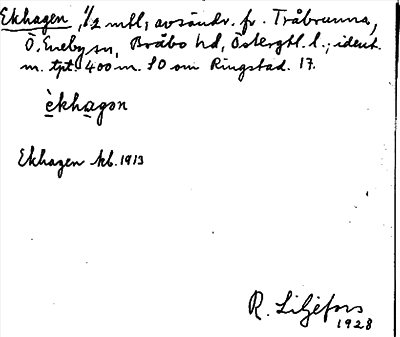 Ekhagen, 1/2 mtl, avsöndr. fr. Tråbrunna,
Ö. Eneby sn, Bråbo hd, Östergtl. l.; ident.
m. tpt. 400 m. SO om Ringstad. 17.
èkhagən
Ekhagen kb. 1913
R. Liljefors
1928